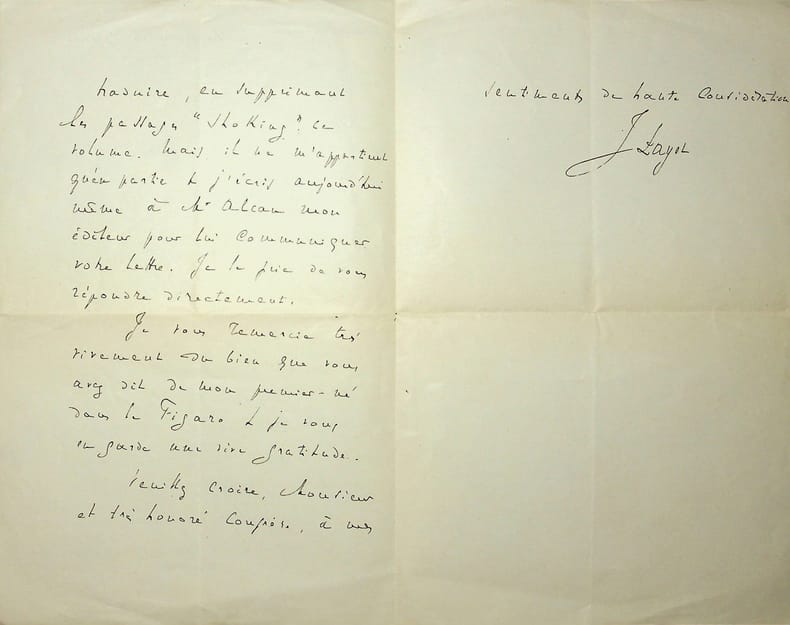 traduire, en supprimant
les passages "Shoking". ce
volume. Mais il ne m'appartient
qu'en partie & j'écris aujourd'hui
même à Mr Alcan mon
éditeur pour lui communiquer
votre lettre. Je le prie de vous
répondre directement.
Je vous remercie très
vivement du bien que vous
avez dit de mon premier-né
dans le Figaro & je vous
en garde une vive gratitude.
Veuillez croire, Monsieur
et très honoré Confrère, à mes
sentiments de haute Considération
J